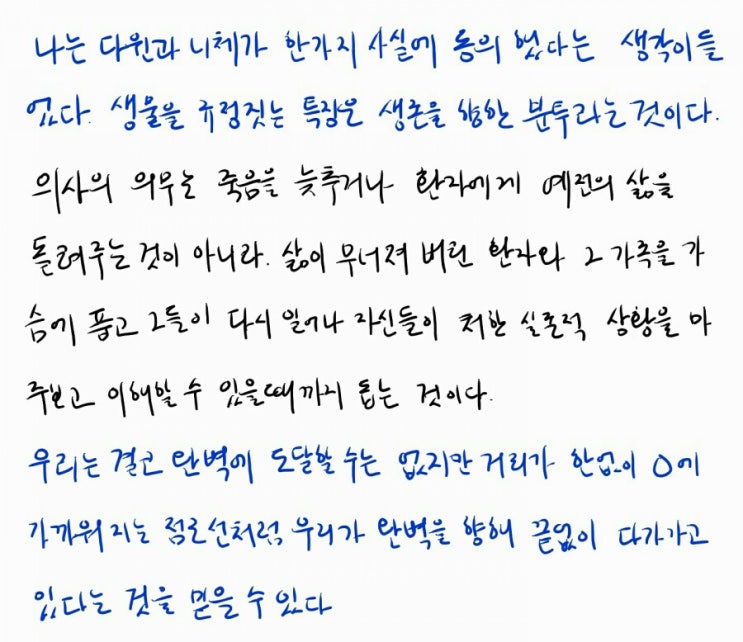 나는 다윈과 니체가 한가지 사실에 동의 했다는 생각이들
었다. 생물을 규정짓는 특징은 생존을 향한 분투라는 것이다.
의사의 의무는 죽음을 늦추거나 환자에게 예전의 삶을
돌려주는 것이 아니라. 삶이 무너져 버린 환자와 그 가족을 가
슴에 품고 그들이 다시 일어나 자신들이 처한 실존적 상황을 마
주보고 이해할 수 있을때까지 돕는 것이다.
우리는 결코 완벽에 도달할 수는 없지만 거리가 한없이 0에
가까워 지는 점근선처럼 우리가 완벽을 향해 끝없이 다가가고
있다는 것을 믿을 수 있다